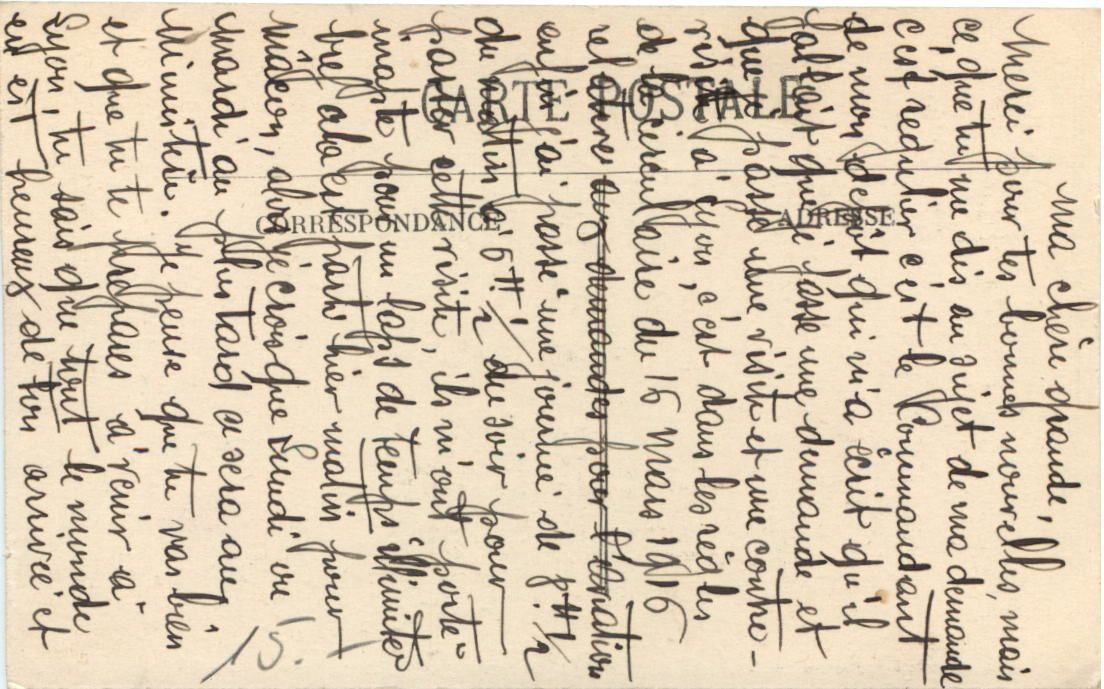 CARTE POSTALE
CORRESPONDANCE
ADRESSE
Ma chère grande,
Merci pour tes bonnes nouvelles, mais
ce que tu me dis au sujet de ma demande
c'est régulier c'est le Commandant
de mon dépôt qui m'a écrit qu'il
fallait que je fasse une demande et
que je passe une visite et une contre-
visite à Lyon, c'est dans les règles
de la circulaire du 16 Mars 1916
relative aux demandes
enfin j'ai passé une journée de 7H 1/2
du matin à 6H 1/2 du soir pour
passer cette visite, ils m'ont porté
inapte pour un laps de temps illimité
bref aba est parti hier matin pour
Mâcon, alors je crois que Lundi ou
mardi au plus tard ce sera au
Ministère. Je pense que tu vas bien
et que tu te prépares à venir à
Lyon, tu sais que tout le monde
en est heureux de ton arrivée et
15.-